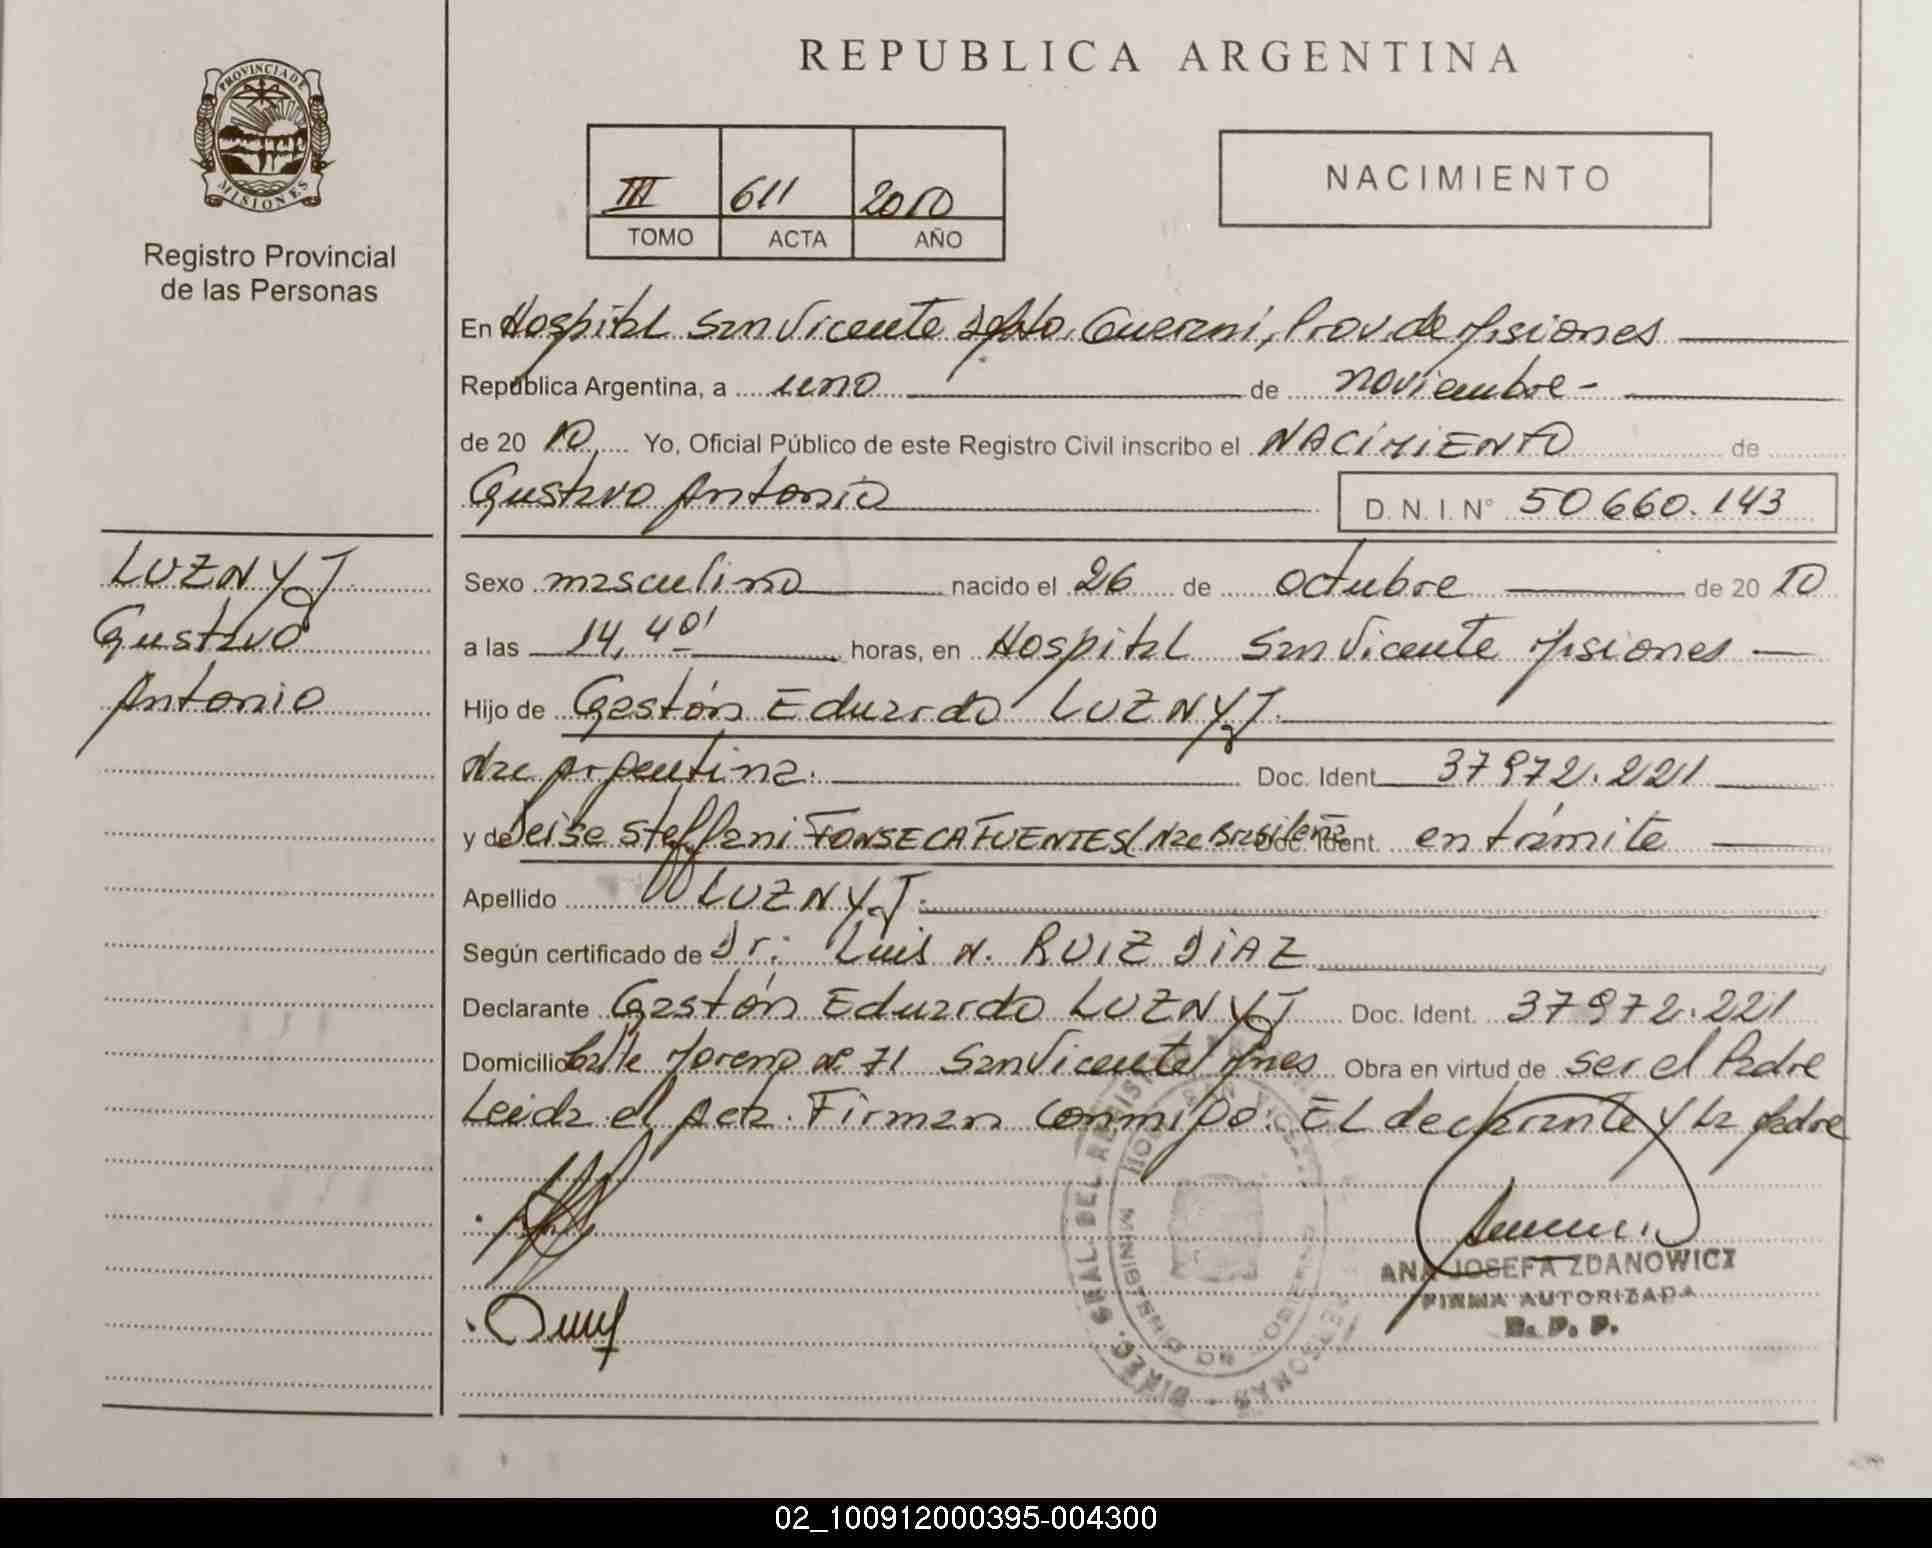 REPUBLICA ARGENTINA
PROVINCIA DE
MISIONES
Registro Provincial
de las Personas
III 611 2010
TOMO ACTA AÑO
NACIMIENTO
En Hospital San Vicente Depto. Guarani, Prov. de Misiones
República Argentina, a uno de noviembre -
de 20 10 Yo, Oficial Público de este Registro Civil inscribo el NACIMIENTO de
Gustavo Antonio D. N. I. N° 50660.143
LUZNYJ.
Gustavo
Antonio
Sexo masculino nacido el 26 de octubre de 20 10
a las 14,40' horas, en Hospital San Vicente Misiones
Hijo de Gastón Eduardo LUZNYJ.
Nac Argentina. Doc. Ident. 37972.221
y de Deise Steffani FONSECA FUENTES (Nac Brasileña Doc. Ident. en trámite
Apellido LUZNYJ.
Según certificado de Dr. Luis N. RUIZ DIAZ
Declarante Gastón Eduardo LUZNYJ Doc. Ident. 37972.221
Domicilio Calle Moreno N° 71 San Vicente Mnes Obra en virtud de ser el Padre
Leida el Acta. Firman conmigo. El declarante y la Madre
ANA JOSEFA ZDANOWICZ
FIRMA AUTORIZADA
R. P. P.
02_100912000395-004300